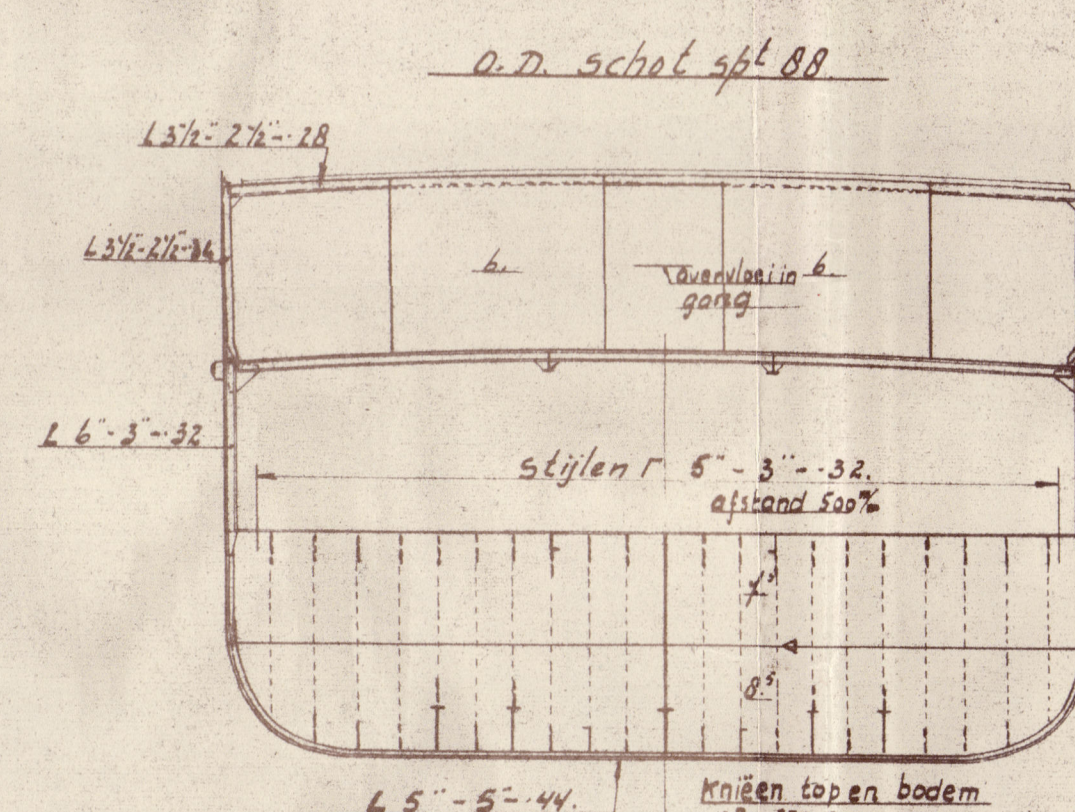 O.D. schot spt 88
L 3½"- 2½"-·28
L 3½"- 2½"-·34
6.
overvloei in
gang
6
L 6"- 3"-·32
stijlen Γ 5"- 3"-·32.
afstand 500 m/m
7.⁵
8.⁵
L 5"- 5"-·44.
Knieën top en bodem